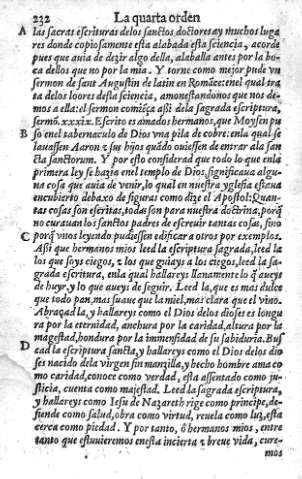 232 La quarta orden
A las sacras escrituras delos sanctos doctores ay muchos luga
res donde copiosamente esta alabada esta sciencia, acorde
pues que auia de dezir algo della, alaballa antes por la bo-
ca dellos que no por la mia. Y torne como mejor pude vn
sermon de sant Augustin de latin en Romãce: enel qual tra
ta delos loores desta sciencia, amonestandonos que nos de-
mos a ella: el sermon comiẽça assi dela sagrada escriptura,
sermõ. xxxix. Escrito es amados hermanos, que Moysen pu
B so enel tabernaculo de Dios vna pila de cobre: enla qual se
lauassen Aaron z sus hijos quãdo ouiessen de entrar ala san
cta sanctorum. Y por esto considerad que todo lo que enla
primera ley se hazia enel templo de Dios, significaua algu-
na cosa que auia de venir, lo qual en nuestra yglesia estaua
encubierto debaxo de figuras como dize el Apostol: Quan-
tas cosas son escritas, todas son para nuestra doctrina, porq̃
no curauan los sanctos padres de escreuir tantas cosas, sino
C porq̃ vnos leyendo pudiessen edificar a otros por exemplos.
Assi que hermanos mios leed la escriptura sagrada, leed la
los que soys ciegos, z los que guiays a los ciegos, leed la sa-
grada escritura, enla qual hallareys llanamente lo q̃ aueys
de huyr, y lo que aueys de seguir. Leed la, que es mas dulce
que todo pan, mas suaue que la miel, mas clara que el vino.
Abraçad la, y hallareys como el Dios delos dioses es longu
ra por la eternidad, anchura por la caridad, altura por la
magestad, hondura por la immensidad de su sabiduria. Bus
D cad la escriptura sancta, y hallareys como el Dios delos dio
ses nacido dela virgen sin manzilla, y hecho hombre ama co
mo caridad, conoce como verdad, esta assentado como ju-
sticia, cuenta como majestad. Leed la sagrada escriptura,
y hallareys como Iesu de Nazareth rige como principe, de-
fiende como salud, obra como virtud, reuela como luz, esta
cerca como piedad. Y por tanto, ô hermanos mios, entre
tanto que estuuieremos enesta incierta z breue vida, cure-
mos